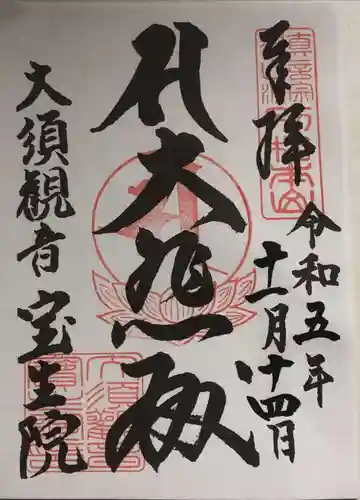 奉拝
令和五年
十一月廿四日
大悲殿
大須観音
宝生院